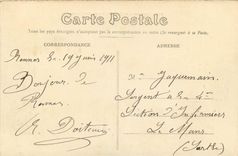 Carte Postale
Tous les pays étrangers n'acceptent pas la correspondance au recto. (Se renseigner à la Poste)
CORRESPONDANCE
ADRESSE
Rennes le 19 Juin 1911
Bonjour de
Rennes
Mr Jaquemain
Sergent à la 4e
Section d'Infirmiers
Le Mans
(Sarthe)